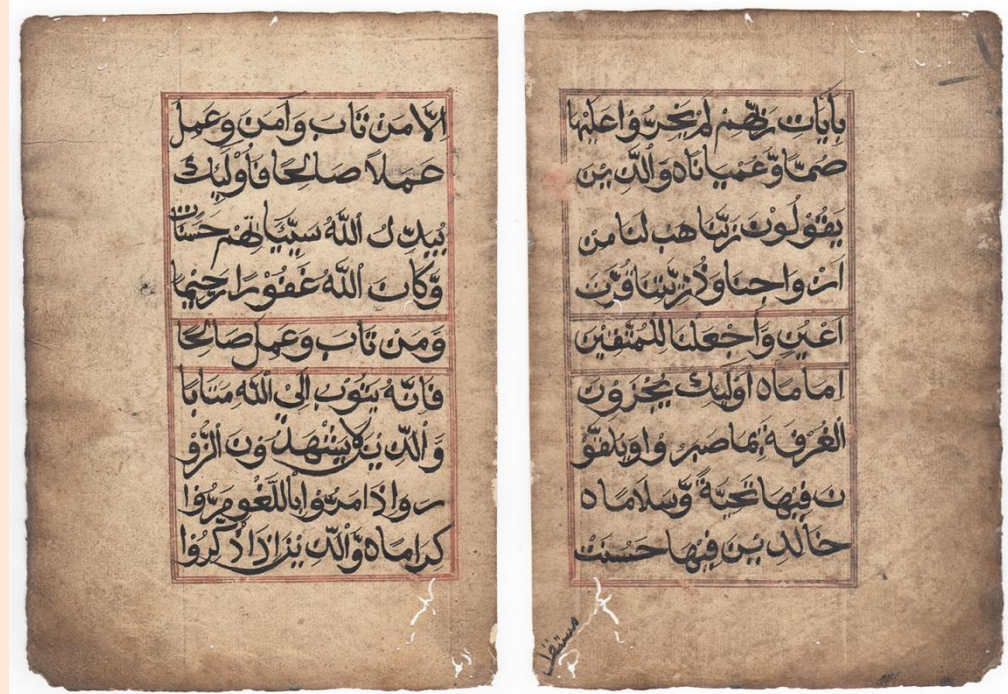 اِلَّا مَنْ تَابَ وَاٰمَنَ وَعَمِلَ
عَمَلًا صَالِحًا فَاُوْلٰئِكَ
يُبَدِّلُ اللّٰهُ سَيِّئَاتِهِمْ حَسَنَاتٍ
وَّكَانَ اللّٰهُ غَفُوْرًا رَّحِيْمًا
وَّمَنْ تَابَ وَعَمِلَ صَالِحًا
فَاِنَّهُ يَتُوْبُ اِلَى اللّٰهِ مَتَابًا
وَّالَّذِيْنَ لَا يَشْهَدُوْنَ الزُّوْ
رَ وَاِذَا مَرُّوْا بِاللَّغْوِ مَرُّوْا
كِرَامًا ه وَّالَّذِيْنَ اِذَا ذُكِّرُوْا
بِاٰيَاتِ رَبِّهِمْ لَمْ يَخِرُّوْا عَلَيْهَا
صُمًّا وَّعُمْيَانًا ه وَالَّذِيْنَ
يَقُوْلُوْنَ رَبَّنَا هَبْ لَنَا مِنْ
اَزْوَاجِنَا وَذُرِّيَّتِنَا قُرَّتَ
اَعْيُنٍ وَّاجْعَلْنَا لِلْمُتَّقِيْنَ
اِمَامًا ه اُولٰئِكَ يُجْزَوْنَ
الْغُرْفَةَ بِمَا صَبَرُوْا وَيُلَقَّوْ
نَ فِيْهَا تَحِيَّةً وَّسَلَامًا ه
خَالِدِيْنَ فِيْهَا حَسُنَتْ
مستقرا